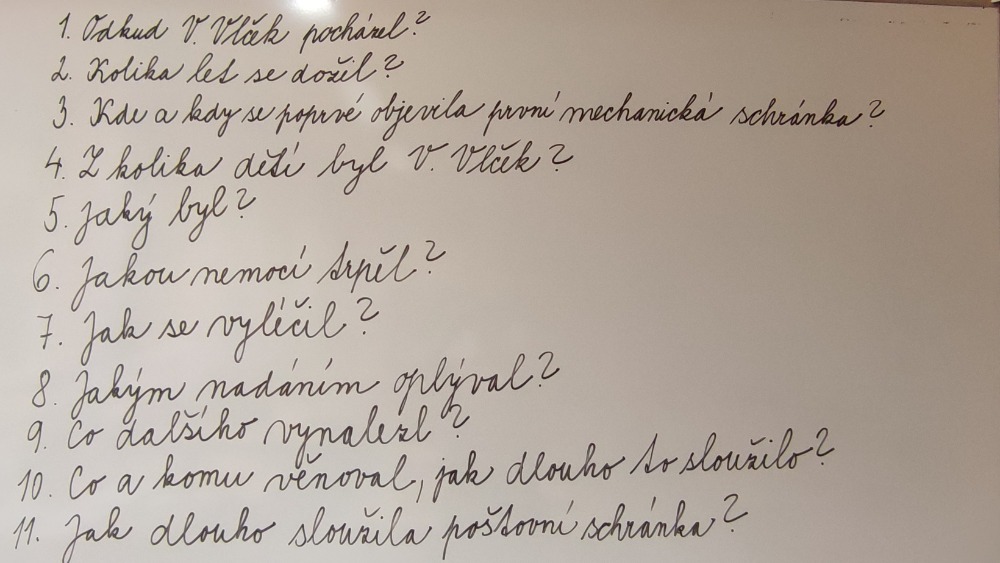 1. Odkud V. Vlček pocházel?
2. Kolika let se dožil?
3. Kde a kdy se poprvé objevila první mechanická schránka?
4. Z kolika dětí byl V. Vlček?
5. Jaký byl?
6. Jakou nemocí trpěl?
7. Jak se vyléčil?
8. Jakým nadáním oplýval?
9. Co dalšího vynalezl?
10. Co a komu věnoval, jak dlouho to sloužilo?
11. Jak dlouho sloužila poštovní schránka?